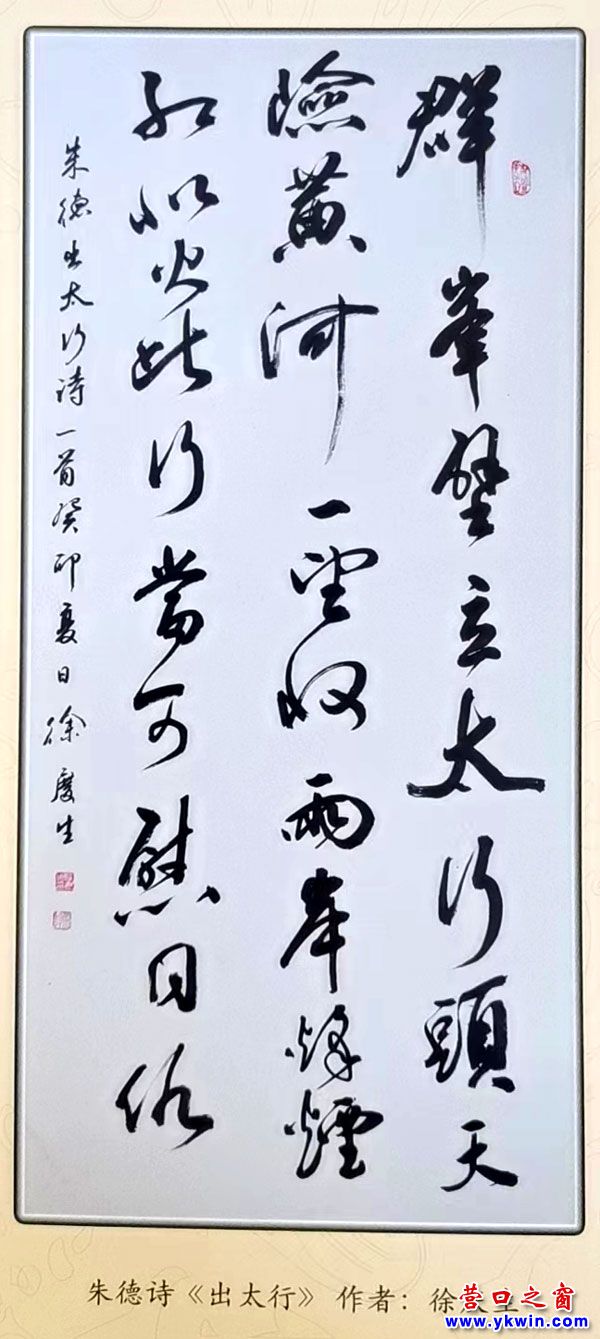 群峯壁立太行頭天
險黄河一望收兩岸烽煙
红似火此行當可慰同仇
朱德出太行诗一首癸卯夏日徐慶生
朱德诗《出太行》 作者：徐
营口之窗
www.ykwin.com